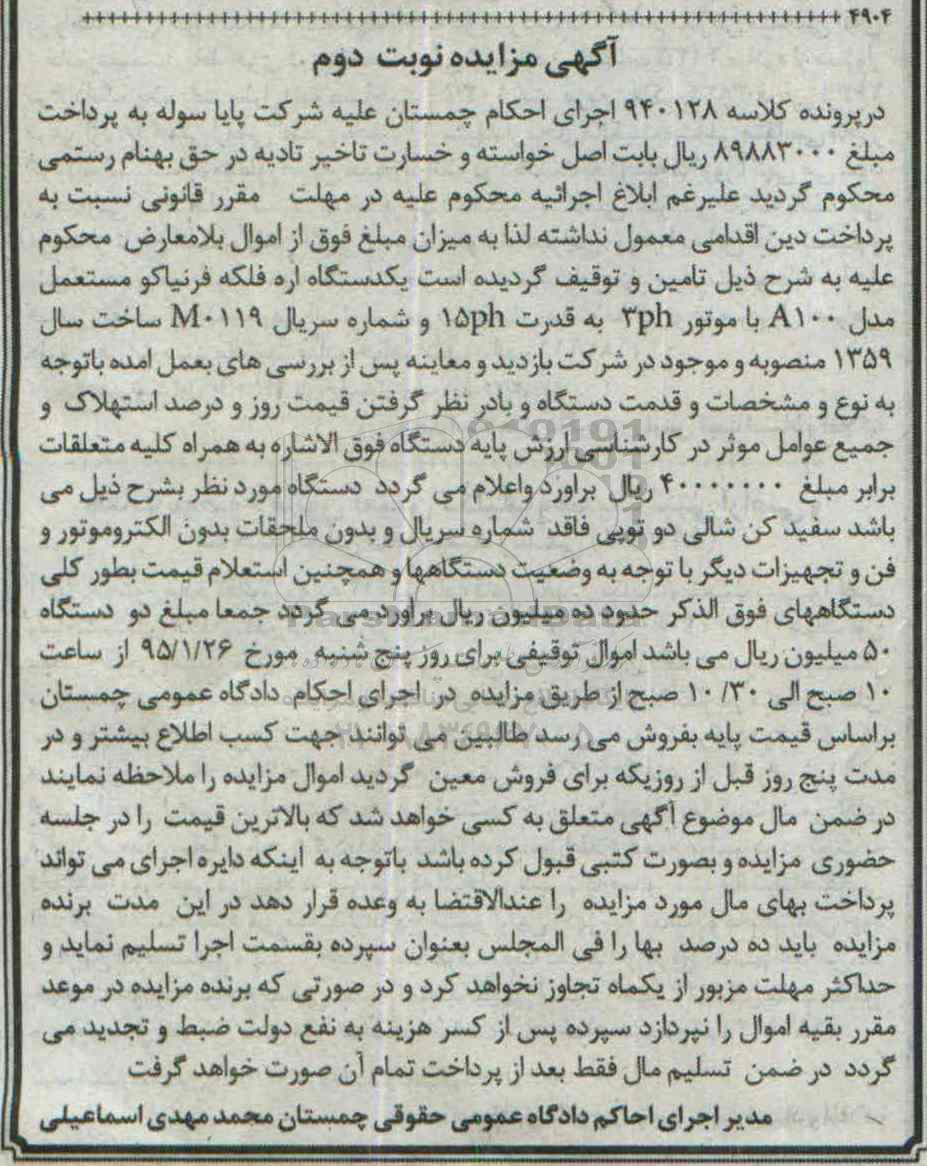 ۴۹۰۴
آگهی مزایده نوبت دوم
درپرونده کلاسه ۹۴۰۱۲۸ اجرای احکام چمستان علیه شرکت پایا سوله به پرداخت
مبلغ ۸۹۸۸۳۰۰۰ ریال بابت اصل خواسته و خسارت تاخیر تادیه در حق بهنام رستمی
محکوم گردید علیرغم ابلاغ اجرائیه محکوم علیه در مهلت مقرر قانونی نسبت به
پرداخت دین اقدامی معمول نداشته لذا به میزان مبلغ فوق از اموال بلامعارض محکوم
علیه به شرح ذیل تامین و توقیف گردیده است یکدستگاه اره فلکه فرنیاکو مستعمل
مدل A۱۰۰ با موتور ۳ph به قدرت ۱۵ph و شماره سریال M۰۱۱۹ ساخت سال
۱۳۵۹ منصوبه و موجود در شرکت بازدید و معاینه پس از بررسی های بعمل امده باتوجه
به نوع و مشخصات و قدمت دستگاه و بادر نظر گرفتن قیمت روز و درصد استهلاک و
جمیع عوامل موثر در کارشناسی ارزش پایه دستگاه فوق الاشاره به همراه کلیه متعلقات
برابر مبلغ ۴۰۰۰۰۰۰۰ ریال براورد واعلام می گردد دستگاه مورد نظر بشرح ذیل می
باشد سفید کن شالی دو توپی فاقد شماره سریال و بدون ملحقات بدون الکتروموتور و
فن و تجهیزات دیگر با توجه به وضعیت دستگاهها و همچنین استعلام قیمت بطور کلی
دستگاههای فوق الذکر حدود ده میلیون ریال براورد می گردد جمعا مبلغ دو دستگاه
۵۰ میلیون ریال می باشد اموال توقیفی برای روز پنج شنبه مورخ ۹۵/۱/۲۶ از ساعت
۱۰ صبح الی ۱۰/۳۰ صبح از طریق مزایده در اجرای احکام دادگاه عمومی چمستان
براساس قیمت پایه بفروش می رسد طالبین می توانند جهت کسب اطلاع بیشتر و در
مدت پنج روز قبل از روزیکه برای فروش معین گردید اموال مزایده را ملاحظه نمایند
در ضمن مال موضوع آگهی متعلق به کسی خواهد شد که بالاترین قیمت را در جلسه
حضوری مزایده و بصورت کتبی قبول کرده باشد باتوجه به اینکه دایره اجرای می تواند
پرداخت بهای مال مورد مزایده را عندالاقتضا به وعده قرار دهد در این مدت برنده
مزایده باید ده درصد بها را فی المجلس بعنوان سپرده بقسمت اجرا تسلیم نماید و
حداکثر مهلت مزبور از یکماه تجاوز نخواهد کرد و در صورتی که برنده مزایده در موعد
مقرر بقیه اموال را نپردازد سپرده پس از کسر هزینه به نفع دولت ضبط و تجدید می
گردد در ضمن تسلیم مال فقط بعد از پرداخت تمام آن صورت خواهد گرفت
مدیر اجرای احاکم دادگاه عمومی حقوقی چمستان محمد مهدی اسماعیلی